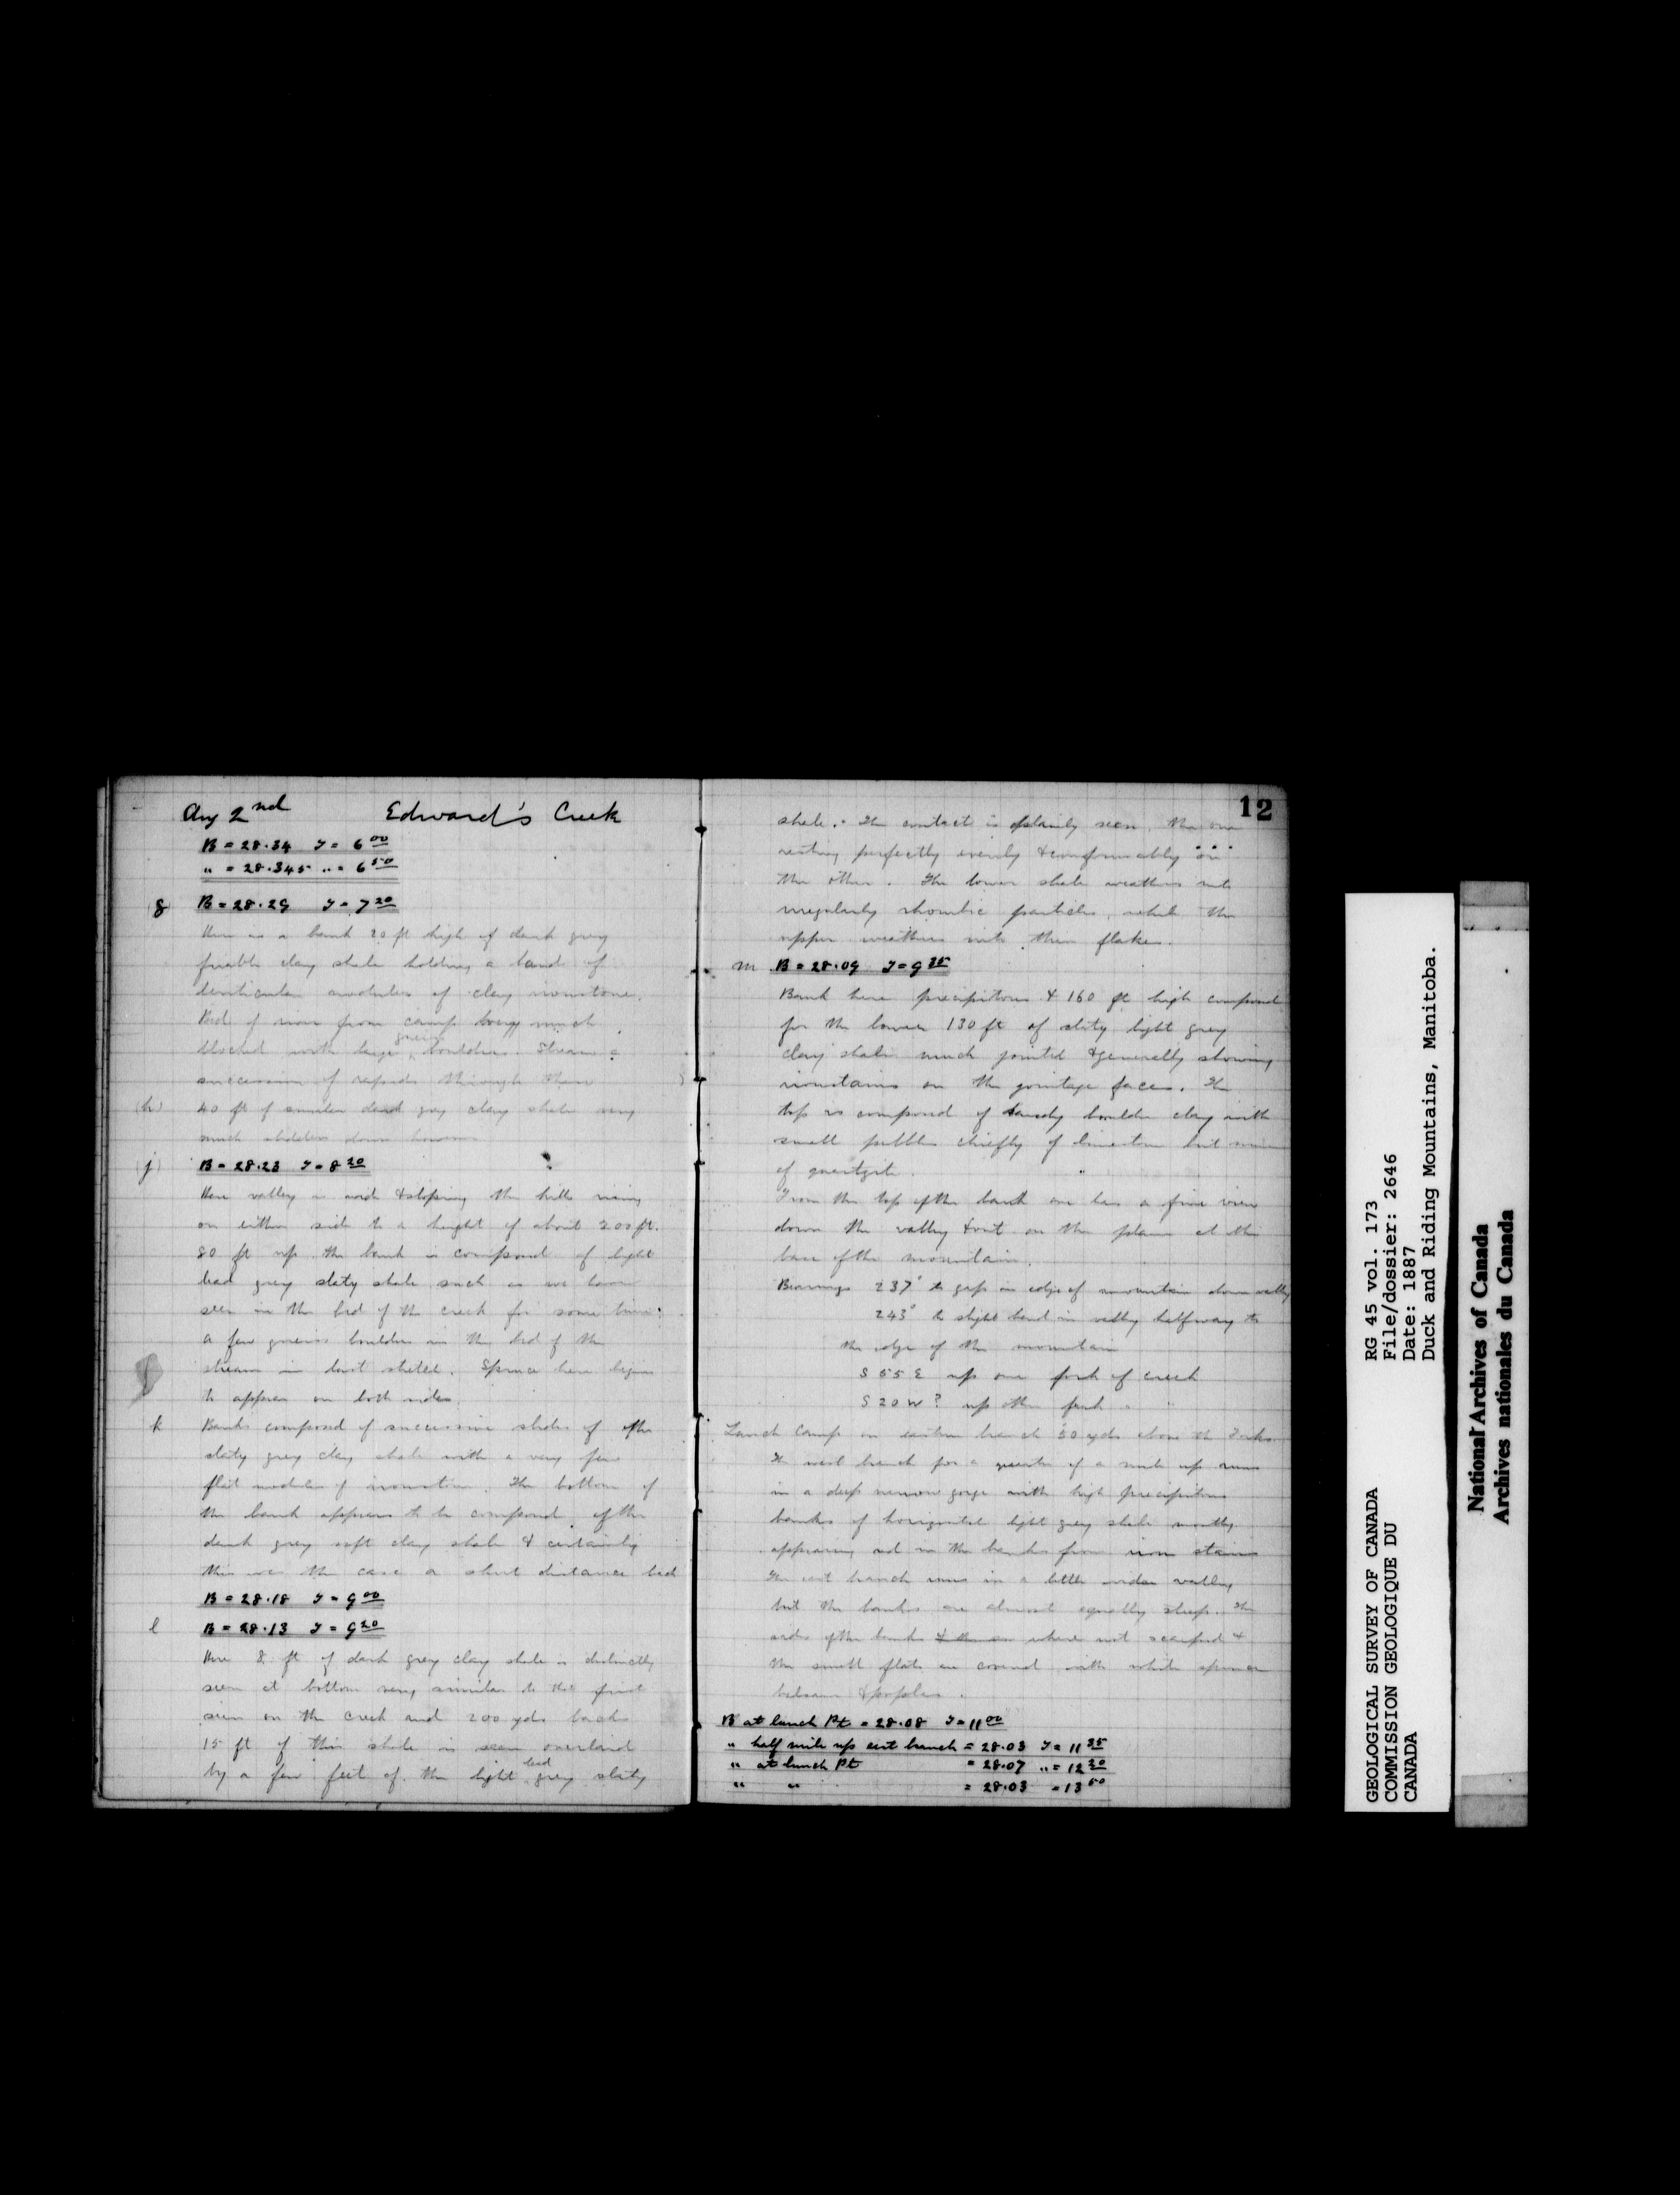 Aug 2nd Edward's Creek
B = 28.34 T = 6 00
" = 28.345 " = 6 50
g B = 28.29 T = 7 20
Here is a bank 20 ft high of dark grey
friable clay shale holding a band of
lenticular nodules of clay ironstone.
Bed of river from camp very much
blocked with large gneiss boulders. Stream a
succession of rapids through them
(h) 40 ft of similar dark grey clay shale very
much slidden down however
(j) B = 28.23 T = 8 20
Here valley is wide & sloping the hills rising
on either side to a height of about 200 ft.
80 ft up the bank is composed of light
lead grey slaty shale such as we have
seen in the bed of the creek for some time.
A few gneiss boulders in the bed of the
stream in last stretch. Spruce here begins
to appear on both sides.
k Banks composed of successive slides of the
slaty grey clay shale with a very few
flat nodules of ironstone. The bottom of
the bank appears to be composed of the
dark grey soft clay shale & certainly
this was the case a short distance back
B = 28.18 T = 9 00
l B = 28.13 T = 9 20
Here 8 ft of dark grey clay shale is distinctly
seen at bottom very similar to that first
seen on the creek and 200 yds back
15 ft of this shale is seen overlaid
by a few feet of the light lead grey slaty
12
shale. The contact is plainly seen, the one
resting perfectly evenly & conformably on
the other. The lower shale weathers into
irregularly rhombic particles, while the
upper weathers into thin flakes.
m B = 28.09 T = 9 35
Bank here precipitous & 160 ft high composed
for the lower 130 ft of slaty light grey
clay shale much jointed & generally showing
ironstains on the jointage faces. The
top is composed of sandy boulder clay with
small pebbles chiefly of limestone but some
of quartzite.
From the top of the bank one has a fine view
down the valley & out on the plain at the
base of the mountain.
Bearings 237° to gap in edge of mountain down valley
243° to slight bend in valley halfway to
the edge of the mountain
S 55 E up one fork of creek
S 20 W? up other fork.
Lunch Camp on eastern branch 50 yds above the Forks
The west branch for a quarter of a mile up runs
in a deep narrow gorge with high precipitous
banks of horizontal light grey shale mostly
appearing red in the banks from iron stains
The east branch runs in a little wider valley
but the banks are almost equally steep. The
sides of the bank where not scarped &
the small flats are covered with white spruce
balsam & poplar.
B at lunch Pt = 28.08 T = 11 00
" half mile up east branch = 28.03 T = 11 35
" at lunch Pt = 28.07 " = 12 30
" " = 28.03 = 13 50
GEOLOGICAL SURVEY OF CANADA
COMMISSION GEOLOGIQUE DU
CANADA
RG 45 vol. 173
File/dossier: 2646
Date: 1887
Duck and Riding Mountains, Manitoba.
National Archives of Canada
Archives nationales du Canada